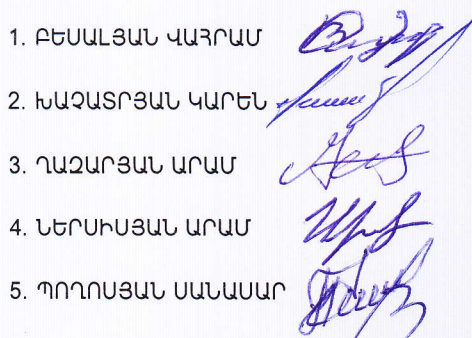 1. ԲԵՍԱԼՅԱՆ ՎԱՀՐԱՄ
2. ԽԱՉԱՏՐՅԱՆ ԿԱՐԵՆ
3. ՂԱԶԱՐՅԱՆ ԱՐԱՄ
4. ՆԵՐՍԻՍՅԱՆ ԱՐԱՄ
5. ՊՈՂՈՍՅԱՆ ՍԱՆԱՍԱՐ